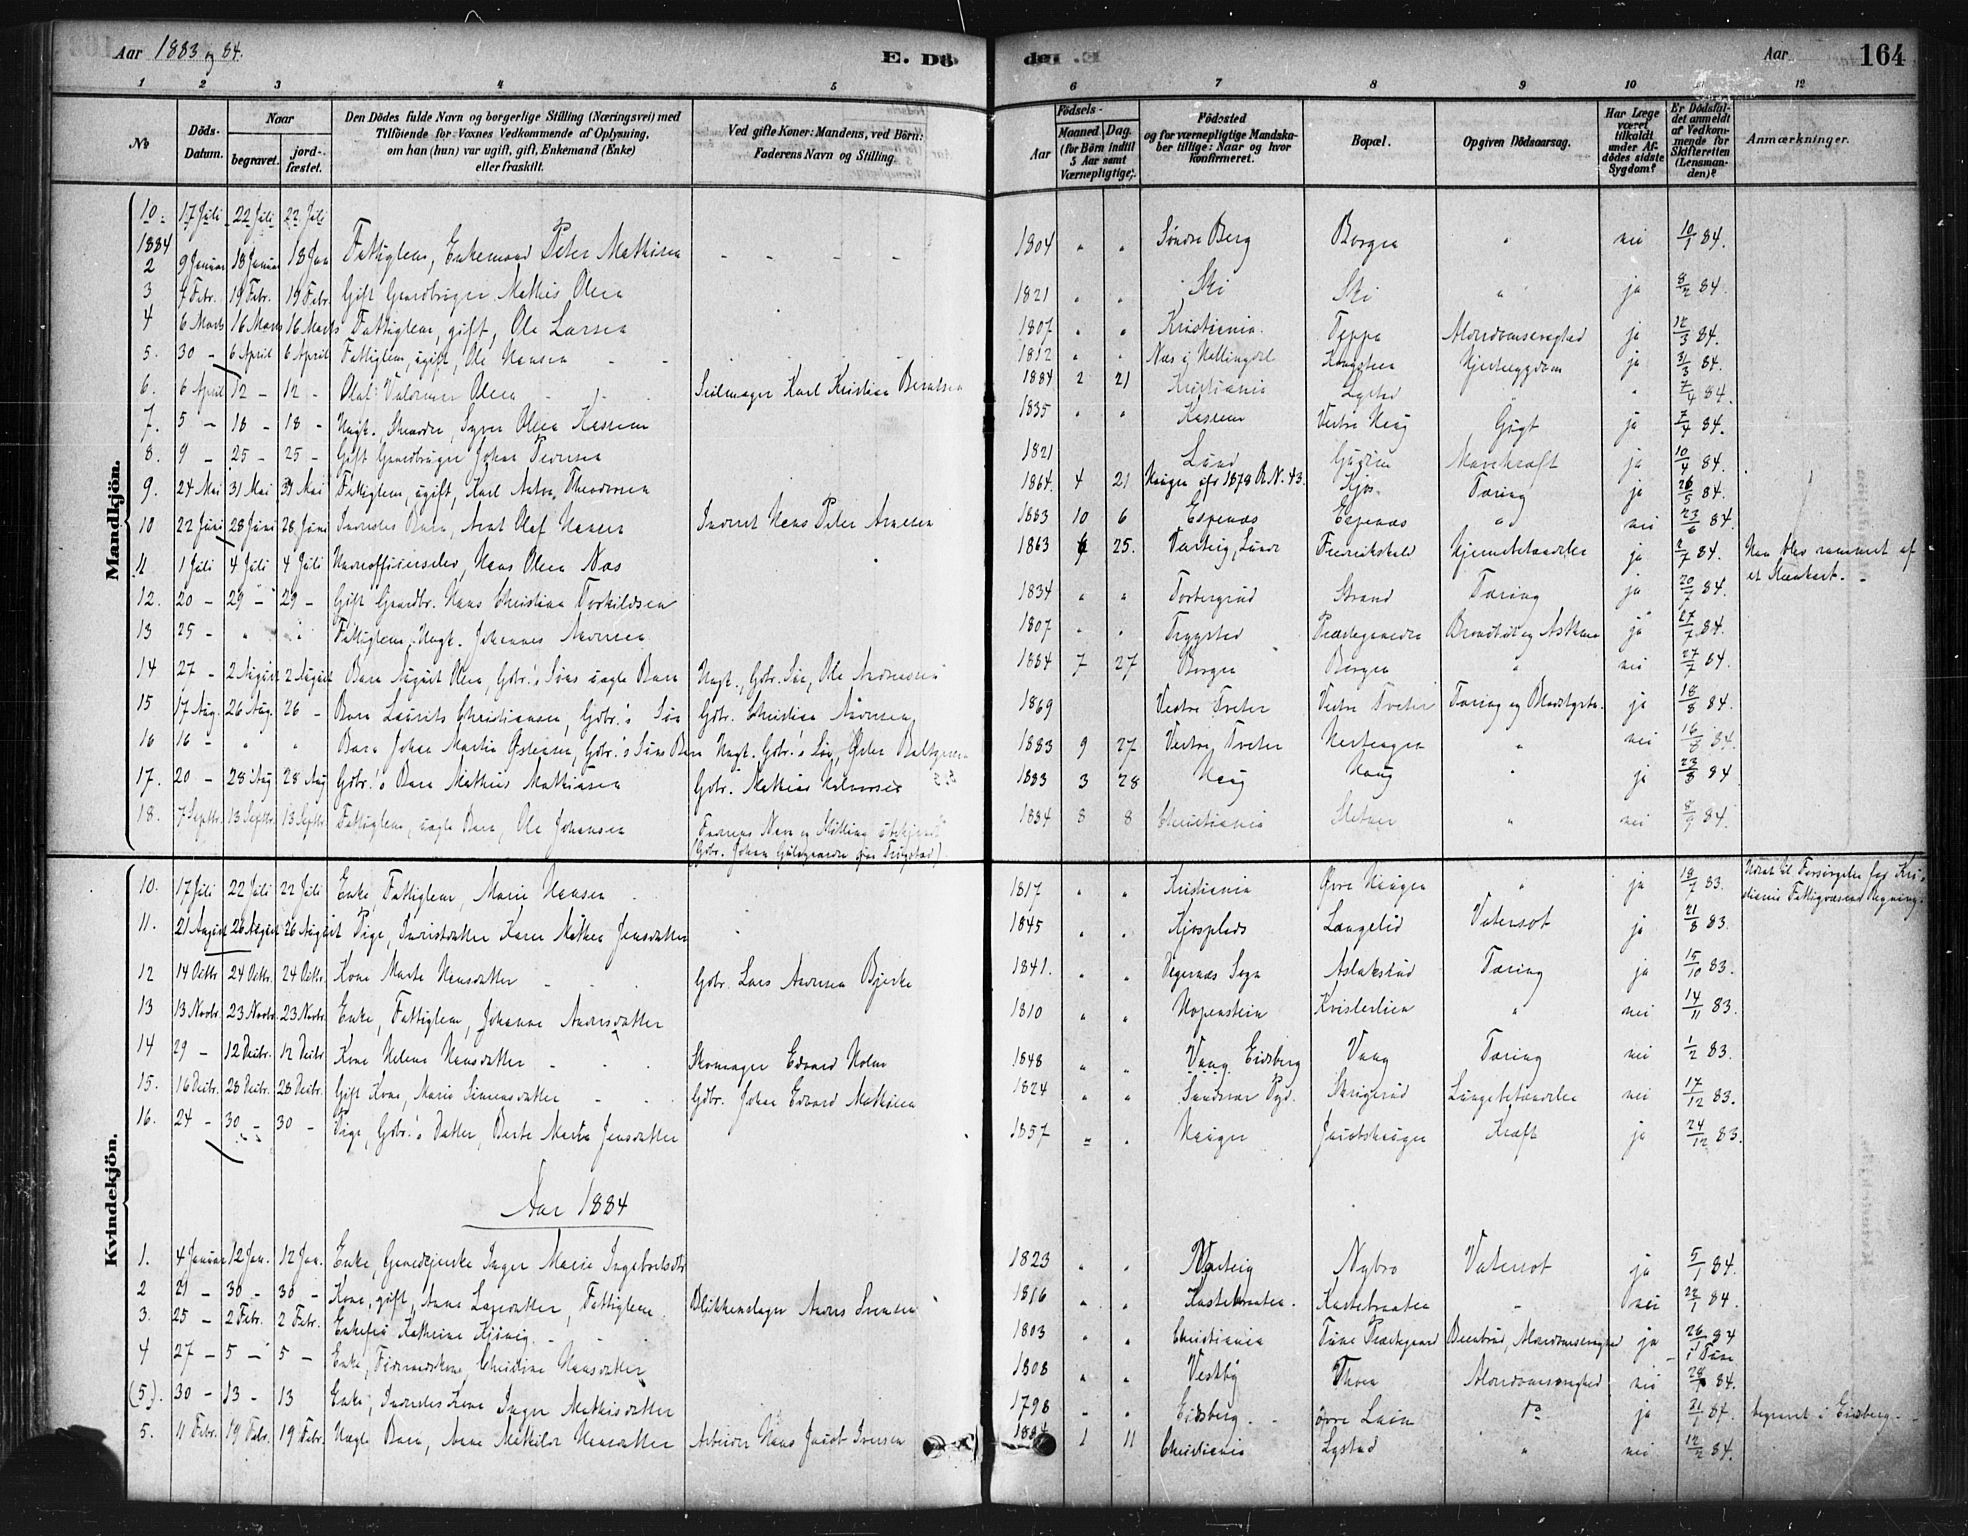 Aar 1883 og 84.
E. Dö
de. E.
Aar
164
1 2 3 4 5 6 7 8 9 10 11 12
No
Döds-Datum.
Naar
begravet.
jord-fæstet.
Den Dödes fulde Navn og borgerlige Stilling (Næringsvei) med
Tilföiende for Voxnes Vedkommende af Oplysning,
om han (hun) var ugift, gift, Enkemand (Enke)
eller fraskilt.
Ved gifte Koner: Mandens, ved Börn:
Faderens Navn og Stilling.
Födsels-
Aar
Maaned. Dag.
(for Börn indtil
5 Aar samt
Værnepligtige).
Födested
og for værnepligtige Mandska-
ber tillige: Naar og hvor
konfirmeret.
Bopæl.
Opgiven Dödsaarsag.
Har Læge
været
tilkaldt
under Af-
dödes sidste
Sygdom?
Er Dödsfal-
det anmeldt
af Vedkom-
mende for
Skifteretten
(Lensman-
den)?
Anmærkninger.
Mandkjön.
10. 17 Juli 22 Juli 22 Juli
1884
2 9 Januar 18 Januar 18 Jan Fattiglem, Enkemand Peter Mathisen 1804 " " Søndre Berg Borgen " nei 10/1 84.
3 7 Febr. 19 Febr. 19 Febr. Gift Gaardbruger Mathis Olsen 1821 " " Ski Ski " ja 8/2 84.
4 6 Marts 16 Marts 16 Marts Fattiglem, gift, Ole Larsen 1807 " " Kristiania. Teppa Alderdomssvaghed ja 12/3 84.
5. 30 - 6 April 6 April Fattiglem, ugift, Ole Hansen 1812 " " Næs i Hallingdal Hjertesygdom ja 31/3 84.
6. 6 April 12 - 12 - Olaf Valdemar Olsen Seilmager Karl Kristian Berntsen 1884 2 21 Kristiania Lystad " 7/4 84.
7. 5 - 18 - 18 - Ungk. Syver Olsen 1835 " " Vestre Haug Gigt ja 7/4 84.
8. 9 - 25 - 25 - Gift Gaardbruger Johan Pedersen 1821 Lund Mavekræft ja 10/4 84.
9. 24 Mai 31 Mai 31 Mai Fattiglem, ugift, Karl Anton Theodorsen 1864. 4 21 Kjos Tæring ja 26/5 84.
10 22 Juni 28 Juni 28 Juni Inderstes Barn, Arnt Olaf Hansen Inderst Hans Peter Arnesen 1883 10 6 Espenæs Espenæs " nei 23/6 84.
11. 1 Juli 4 Juli 4 Juli Underofficerselev, Hans Olsen Næs 1863 6 25. Varteig, Lunde Fredrikshald Hjernebetændelse ja 2/7 84. Han blev rammet af
et Steenkast.
12. 20 - 29 - 29 - Gift Gaardbr. Hans Christian Torkildsen 1834 " " Torbergrud Strand Tæring ja 20/7 84.
13 25 - " " Fattiglem, Ungk. Johannes Andersen 1807 " " Trygstad Præstegaarden Brondkit og Asthma ja 27/7 84.
14 27 - 2 August 2 August Barn August Olsen, Gdbr.'s Søns uægte Barn Ungk., Gdbr. Søn, Ole Andersen 1884 7 27 Borgen Borgen " nei 27/7 84.
15 17 Aug. 26 Aug. 26 - Barn Laurits Christiansen, Gdbr.'s Søn Gdbr. Christian Andersen 1869 Vestre Tveter Vestre Tveter Tæring og Blodstyrtn. ja 18/8 84.
16 16 - " " Barn Johan Martin Østersen, Gdbr.'s Søns Barn Ungk. Gdbr.'s Søn, Øster Baltzersen 1883 9 27 Vestre Tveter " nei 16/8 84.
17. 20 - 28 Aug 28 Aug Gdbr.'s Barn Mathias Mathiasen Gdbr. Mathias Halvorsen 1883 3 28 Haug Haug " ja 23/8 84
18. 7 Septbr. 13 Septbr. 13 Septbr. Fattiglem, uægte Barn, Ole Johansen Faderens Navn og Stilling ubekjendt
1884 8 8 Christiania Sletner " nei 8/9 84.
Kvindekjön.
10. 17 Juli 22 Juli 22 Juli Enke, Fattiglem, Marie Hansen 1817 " " Kristiania Øvre Haugen " ja 18/7 83. Udsat til Forsørgelse for Kri-
stiania Fattigvæsens Regning.
11. 21 August 26 August 26 August Pige, Inderstdatter Karen Mathea Jensdatter 1845 " " Kjosplads Langelid Vatersot ja 21/8 83.
12 14 Octbr. 24 Octbr. 24 Octbr. Kone Marte Hansdatter Gdbr. Lars Andersen Bjerke 1841. " " Degernæs Sogn Aslakstrud Tæring ja 15/10 83.
13 13 Novbr. 23 Novbr. 23 Novbr. Enke, Fattiglem, Johanne Andersdatter 1810 " " Kvislerlien " nei 14/11 83.
14 29 - 12 Decbr. 12 Decbr Kone Helene Hansdatter Skomager Edvard Holm 1848 " " Vaag. Eidsberg Vaag Tæring nei 1/2 83.
15. 16 Decbr. 28 Decbr. 28 Decbr. Gift Kone, Marie Simensdatter Gdbr. Johan Edvard Mathisen 1824 " " Skrigerud Lungebetændelse nei 17/12 83.
16. 24 - 30 - 30 - Pige, Gdbr.'s Datter, Berte Marie Jensdatter 1857 " " Haugen Jacobshaugen Kræft ja 24/12 83.
Aar 1884
1. 4 Januar 12 Jan. 12 Jan. Enke, Inger Marie Ingebretsdtr 1823 " " Varteig Nybro Vatersot ja 5/1 84.
2 21 - 30 - 30 - Kone, gift, Anne Larsdatter, Fattiglem Blikkenslager Anders Svensen 1816 " " Kastebraaten. Kastebraaten " nei 22/1 84.
3. 25 - 2 Febr. 2 Febr. Enkefru Kathrine 1803 " " Christiania Tune Præstegaard Alderdomssvaghed ja 26/1 84
i Tune
4 27 - 5 - 5 - Enke, Christine Hansdatter 1808 " " Vestby Thoen Alderdomssvaghed nei 28/1 84.
(5). 30 - 13 - 13 Enke, Inderstes Kone Inger Mathisdatter 1798 " " Eidsberg. øvre Lein Do ja 31/1 84. begravet i Eidsberg.
5. 11 Febr. 19 Febr. 19 Febr. Uægte Barn, Anne Mathilde Hansdatter Arbeider Hans Jacob Iversen 1884 1 11 Christiania Lystad " nei 12/2 84.